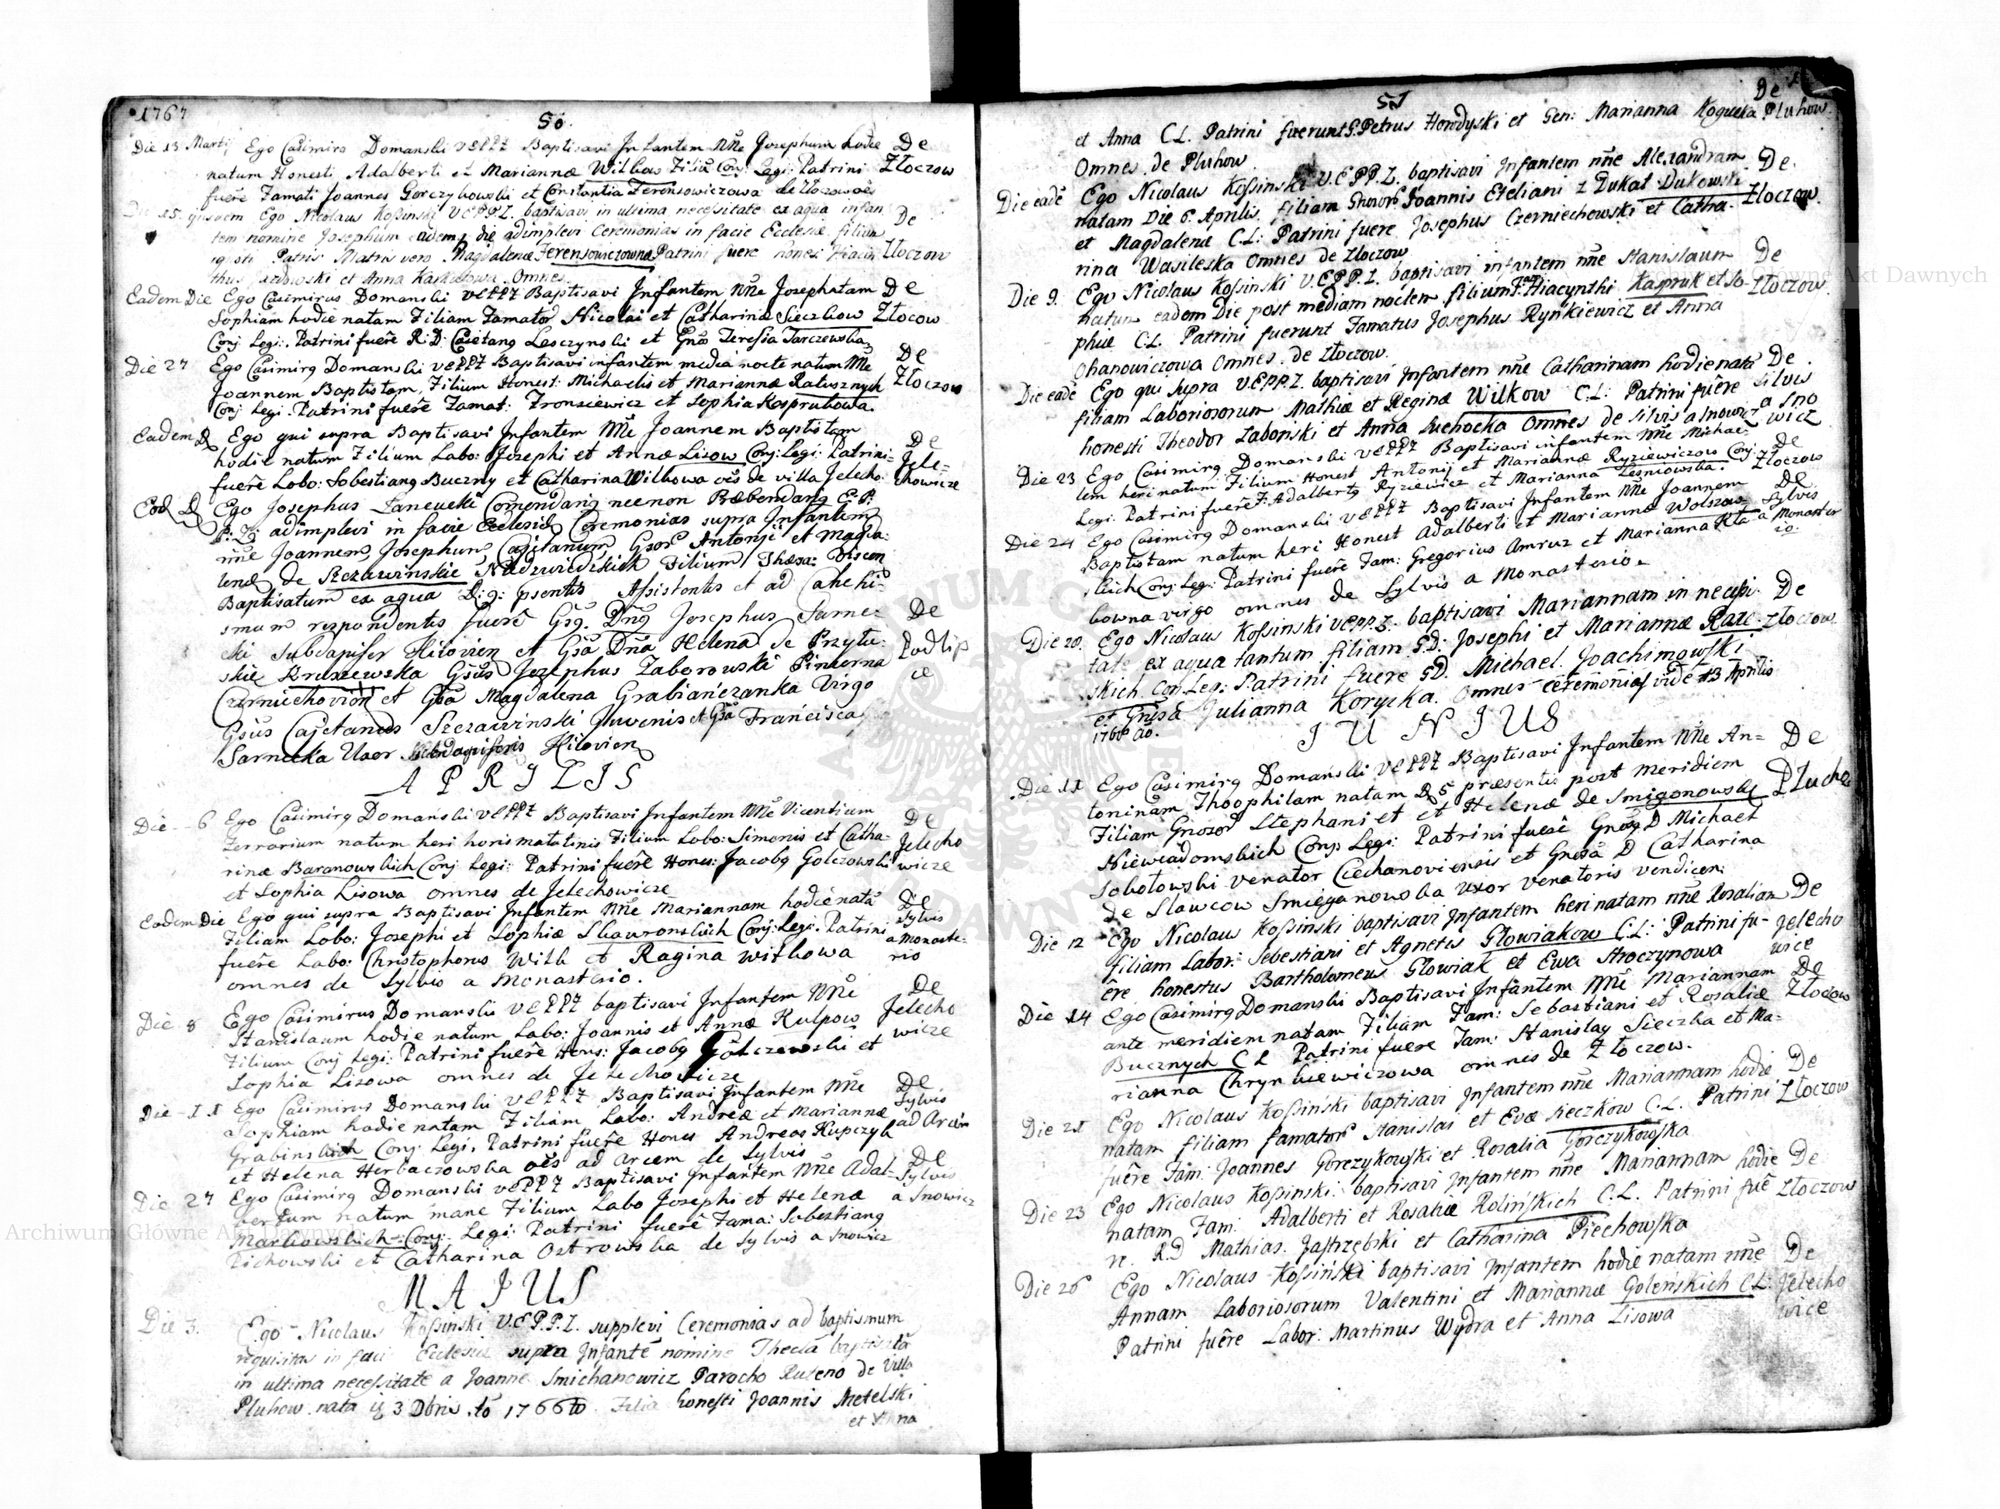 1767
50.
Die 13 Martij Ego Casimirg Domanski VEPPZ Baptisavi Infantem Nne Josephum hodie De
natum Honesti Adalberti et Mariannæ Wilkow Filiu Conj: Legi: Patrini Złoczow
fuere Famati Joannes Gorczykowski et Constantia Ferensowiczowa de Złoczow oes
Die 15. ejusdem Ego Nicolaus Kossinski V.E.P.P.Z. baptisavi in ultima necessitate ex aqua infan De
tem nomine Josephum eadem die adimplevi Ceremonias in facie Ecclesiæ filium
ignoti Patris Matris vero Magdalenæ Ferensowiczowna Patrini fuere hones: Hiacin Złoczow
thus et Anna Omnes
Eadem Die Ego Casimirus Domanski VEPPZ Baptisavi Infantem Nne Josephatam De
Sophiam hodie natam Filiam Famator Nicolai et Catharinæ Sieczkow Złocow
Conj: Legi: Patrini fuere R: D: Cajetang Leoczynski et Gnsa Teresia Tarczewska
Die 27 Ego Casimirg Domanski VEPPZ Baptisavi infantem media nocte natum Nne De
Joannem Baptistam, Filium Honest: Michaelis et Mariannæ Ratusznych Złoczow
Conj Legi: Patrini fuere Famat: Fronsiewicz et Sophia Kasprukowa.
Eadem D Ego qui supra Baptisavi Infantem Nne Joannem Baptistam De
hodie natum Filium Labo: Josephi et Annæ Lisow Conj: Legi: Patrini Jele=
fuere Labo: Sebestiang Buczny et Catharina Wilkowa oes de villa Jelecho: chowicze
Eod D Ego Josephus Janeucki Comendang necnon Præbendang E.P:
P: Z: adimplevi in facie Ecclesiæ Ceremonias supra Infantem
nne Joannem, Josephum, Cajetanum, Gsor Antonji et Magda:
lenæ de Szczawinskie Niedzwiedzkich Filium
Baptisatum ex aqua D: 9: psentis Assistentes et ad Catechi:
smum respondentes fuere Gsg. Dng Josephus Sarne: De
cki Subdapifer Kijovien et Gsa Dna Helena de Przyłu: Podlip
skie Bruszewska Gsus Josephus Zaborowski Pincerna ce
Czerniechovien et Gsa Magdalena Grabianczanka Virgo
Gsus Cajetanus Szczawinski Juvenis et Gsa Francisca
Sarnecka Uxor Subdapiferis Kijovien
APRILIS
Die 6 Ego Casimirg Domanski VEPPZ Baptisavi Infantem Nne Vicentium De
Ferrarium natum heri horis matutinis Filium Labo: Simonis et Catha- Jelecho
rinæ Baranowskich Conj Legi: Patrini fuere Hones: Jacobg Golczowski wicze
et Sophia Lisowa omnes de Jelechowicze
Eadem Die Ego qui supra Baptisavi Infantem Nne Mariannam hodie nata De
Filiam Labo: Josephi et Sophiæ Skawronskich Conj: Legi: Patrini Sylvis
fuere Labo: Christophorus Wilk et Ragina Wilkowa a Monaste-
omnes de Sylvis a Monasterio. rio
Die 8 Ego Casimirus Domanski VEPPZ baptisavi Infantem Nne De
Stanislaum hodie natum Labo: Joannis et Annæ Kulpow Jelecho
Filium Conj Legi: Patrini fuere Hons: Jacobg Golczewski et wicze
Sophia Lisowa omnes de Jelechowicze
Die 11 Ego Casimirus Domanski VEPPZ Baptisavi Infantem Nne De
Sophiam hodie natam Filiam Labo: Andreæ et Mariannæ Sylvis
Grabinskich Conj: Legi. Patrini fuere Hones Andreas Kupczyk ad Arcem
et Helena Herbaczowska oes ad Arcem de Sylvis
Die 27 Ego Casimirg Domanski VEPPZ Baptisavi Infantem Nne Adal- De Sylvis
bertum natum mane Filium Labo Josephi et Helenæ a Snowicz
Markowskich Conj: Legi: Patrini fuere Fama: Sebestiang
Pichowski et Catharina Ostrowska de Sylvis a Snowicz
MAJUS
Die 3. Ego Nicolaus Kossinski V.E.P.P.Z. supplevi Ceremonias ad baptismum
requisitas in facie Ecclesiæ supra Infante nomine Thecla baptisata
in ultima necessitate a Joanne Smichanowicz Parocho Ruteno de Villa
Pluhow nata 3 Dbris 1766to Filia honesti Joannis Metelski
et Anna
De
51
et Anna C.L. Patrini fuerunt G. Petrus Horodyski et Gen: Marianna Kogucka Pluhow.
Omnes de Pluhow
Die eade Ego Nicolaus Kossinski V.E.P.P.Z. baptisavi Infantem nne Alexandram De
natam Die 6 Aprilis filiam Gnoror Joannis Eteliani z Dukat Dukowski Złoczow.
et Magdalenæ C.L: Patrini fuere Josephus Czerniechowski et Catha-
rina Wasileska Omnes de Złoczow
Die 9. Ego Nicolaus Kossinski V.E.P.P.Z. baptisavi infantem nne Stanislaum De
natum eadem Die post mediam noctem filium F: Hiacynthi Kaspruk et So- Złoczow.
phiæ C.L. Patrini fuerunt Famatus Josephus Rynkiewicz et Anna
Ohanowiczowa Omnes de Złoczow.
Die eade Ego qui supra V.E.P.P.Z. baptisavi Infantem nne Catharinam hodie nata De
filiam Laboriosorum Mathiæ et Reginæ Wilkow C.L: Patrini fuere Silvis
honesti Theodor Zaboński et Anna Suchocka Omnes de Silvis a Snowicz a Sno wicz
Die 23 Ego Casimirg Domanski VEPPZ Baptisavi infantem Nne Michae- De
lem heri natum Filium Honest Antonij et Mariannæ Ryziewiczow Conj: Złoczow
Legi: Patrini fuere F: Adalbertg Ryziewicz et Marianna Leśniowska.
Die 24 Ego Casimirg Domanski VEPPZ Baptisavi Infantem Nne Joannem De
Baptistam natum heri Honest Adalberti et Mariannæ Wolszow Sylvis
skich Conj: Legi: Patrini fuere Fam: Gregorius Amruz et Marianna a Monaster
bowna virgo omnes de Sylvis a Monasterio io.
Die 20. Ego Nicolaus Kossinski VEPPZ. baptisavi Mariannam in necessi. De
tate ex aqua tantum filiam G.D: Josephi et Mariannæ Racz- Złoczow
skich Conj. Leg: Patrini fuere GD. Michael Joachimowski
et Gnsa Julianna Korycka. Omnes Ceremonias vide 13 Aprilis
1768 ao.
JUNIUS
Die 11 Ego Casimirg Domanski VEPPZ Baptisavi Infantem Nne An= De
toninam Theophilam natam D 5 præsentis post meridiem Płuchow
Filiam Gnosor Stephani et et Helenæ de Smigonowski
Niewiadomskich Conj: Legi: Patrini fuere Gnosg D Michael
Sobotowski Venator Ciechanoviensis et Gnosa D Catharina
de Slawcow Smiganowska Uxor Venatoris vendicen:
Die 12 Ego Nicolaus Kossinski baptisavi Infantem heri natam nne Rosaliam De
filiam Labor: Sebestiani et Agnetis Głowiakow C.L: Patrini fu- Jelecho
ere honestus Bartholomeus Głowiak et Ewa Stroczynowa wice
Die 14 Ego Casimirg Domanski Baptisavi Infantem Nne Mariannam De
ante meridiem natam Filiam Fam: Sebastiani et Rosaliæ Złoczow
Bucznych C L Patrini fuere Fam: Stanislag Sieczka et Ma-
rianna Chrynkiewiczowa omnes de Złoczow.
Die 21 Ego Nicolaus Kossiński baptisavi Infantem nne Mariannam hodie De
natam filiam famator Stanislai et Evæ Sieczkow C.L. Patrini Złoczow
fuere Fam: Joannes Gorczykowski et Rosalia Gorczykowska
Die 23 Ego Nicolaus Kossinski baptisavi Infantem nne Mariannam hodie De
natam Fam: Adalberti et Rosaliæ Rolińskich C.L. Patrini fue Złoczow
re. R.D Mathias Jastrzębski et Catharina Piechowska
Die 26 Ego Nicolaus Kossiński baptisavi Infantem hodie natam nne De
Annam Laboriosorum Valentini et Mariannæ Goleńskich C.L: Jelecho
Patrini fuere Labor: Martinus Wydra et Anna Lisowa wice
Archiwum Główne Akt Dawnych